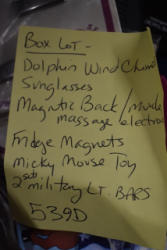 Box Lot -
Dolphin Wind Chime
Sunglasses
Magnetic Back / Muscle
massage electro
Fridge Magnets
Micky Mouse Toy
2 military LT. BARS
539D